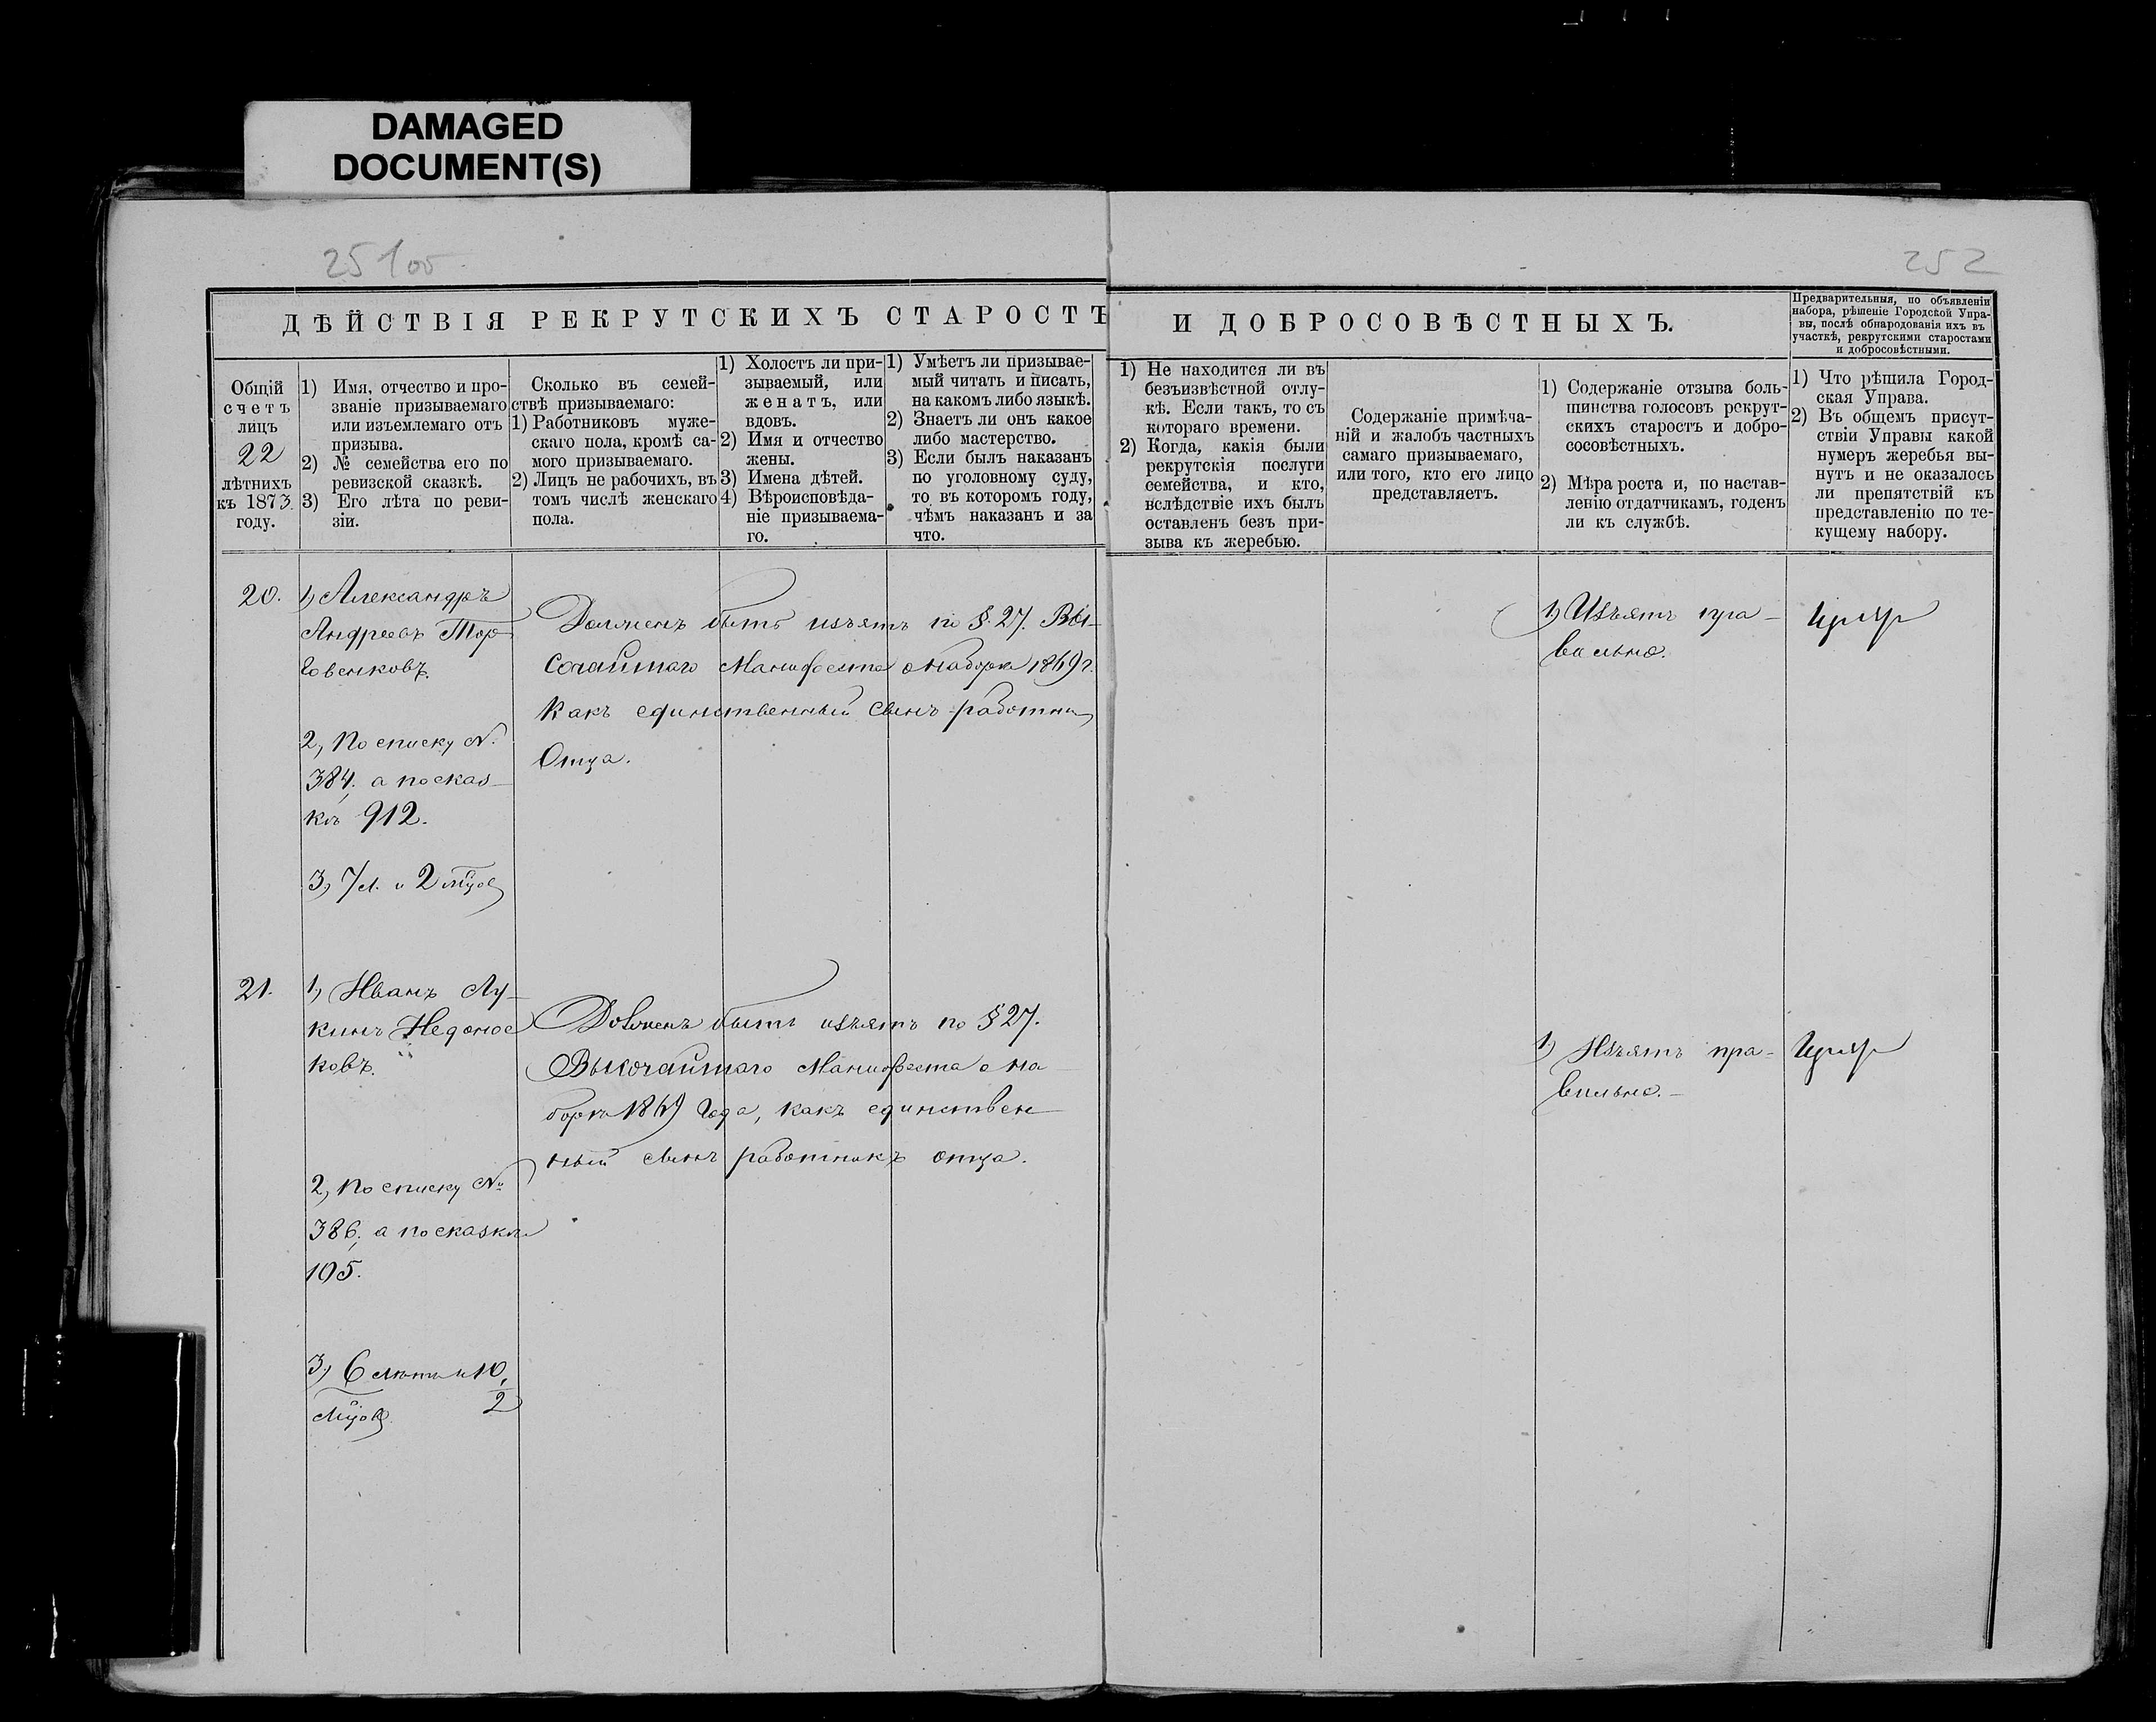 DAMAGED
DOCUMENT(S)
251об
252
ДѢЙСТВІЯ РЕКРУТСКИХЪ СТАРОСТЪ
И ДОБРОСОВѢСТНЫХЪ.
Предварительныя, по объявленіи
набора, рѣшеніе Городской Упра-
вы, послѣ обнародованія ихъ въ
участкѣ, рекрутскими старостами
и добросовѣстными.
Общій
счетъ
лицъ
22
лѣтнихъ
къ 1873.
году.
1) Имя, отчество и про-
званіе призываемаго
или изъемлемаго отъ
призыва.
2) № семейства его по
ревизской сказкѣ.
3) Его лѣта по реви-
зіи.
Сколько въ семей-
ствѣ призываемаго:
1) Работниковъ муже-
скаго пола, кромѣ са-
мого призываемаго.
2) Лицъ не рабочихъ, въ
томъ числѣ женскаго
пола.
1) Холостъ ли при-
зываемый, или
женатъ, или
вдовъ.
2) Имя и отчество
жены.
3) Имена дѣтей.
4) Вѣроисповѣда-
ніе призываема-
го.
1) Умѣетъ ли призывае-
мый читать и писать,
на какомъ либо языкѣ.
2) Знаетъ ли онъ какое
либо мастерство.
3) Если былъ наказанъ
по уголовному суду,
то въ которомъ году,
чѣмъ наказанъ и за
что.
1) Не находится ли въ
безъизвѣстной отлу-
кѣ. Если такъ, то съ
котораго времени.
2) Когда, какія были
рекрутскія послуги
семейства, и кто,
вслѣдствіе ихъ былъ
оставленъ безъ при-
зыва къ жеребью.
Содержаніе примѣча-
ній и жалобъ частныхъ
самаго призываемаго,
или того, кто его лицо
представляетъ.
1) Содержаніе отзыва боль-
шинства голосовъ рекрут-
скихъ старостъ и добро-
сосовѣстныхъ.
2) Мѣра роста и, по настав-
ленію отдатчикамъ, годенъ
ли къ службѣ.
1) Что рѣшила Город-
ская Управа.
2) Въ общемъ присут-
ствіи Управы какой
нумеръ жеребья вы-
нутъ и не оказалось
ли препятствій къ
представленію по те-
кущему набору.
20.
1) Александръ
Андреевъ Тор-
говенковъ.
2, По списку №
384, а по сказ-
кѣ 912.
3, 7 л. и 2 мѣс.
Долженъ быть изъятъ по §. 27. Вы-
сочайшаго Манифеста о наборѣ 1869 г.
Какъ единственный сынъ работникъ
Отца.
1) Изъятъ пра-
вильно.
21.
1, Иванъ Лу-
кинъ Недонос-
ковъ.
2, По списку №
386, а по сказкѣ
105.
3, 6 лѣтъ и 10 1/2
мѣсяц.
Долженъ быть изъятъ по § 27.
Высочайшаго Манифеста о на-
борѣ 1869 Года, какъ единствен-
ный сынъ работникъ отца.
1) Изъятъ пра-
вильно. -